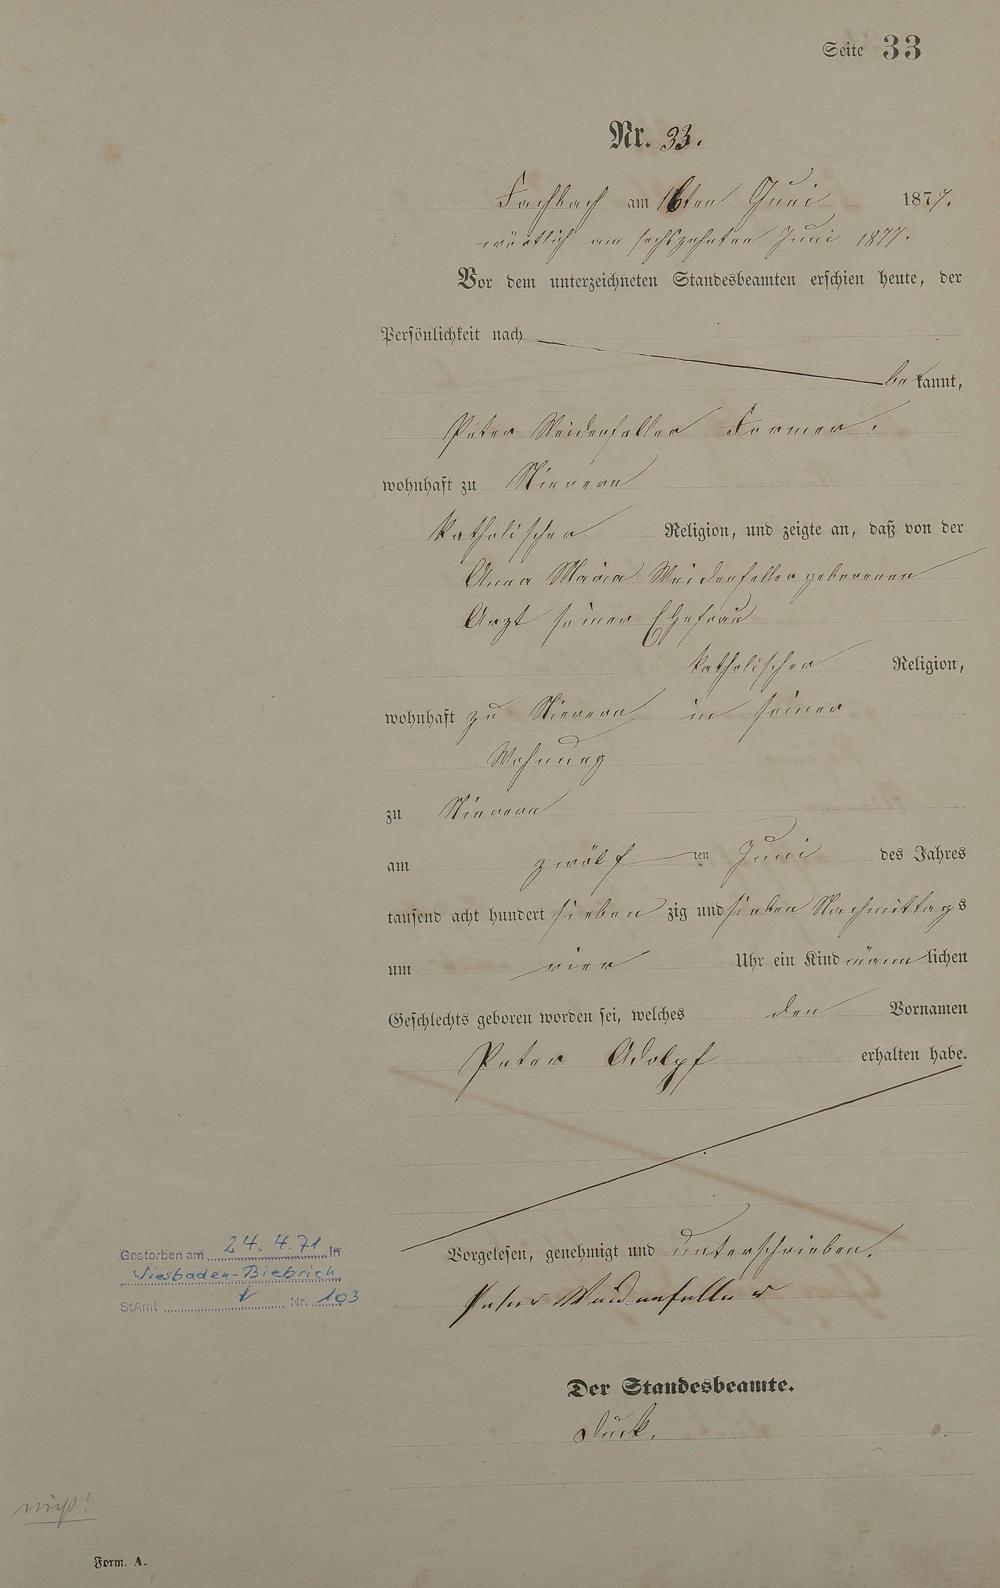 Seite 33
Nr. 33.
Fachbach am 16ten Juni 1877.
wörtlich am sechszehnten Juni 1877.
Vor dem unterzeichneten Standesbeamten erschien heute, der
Persönlichkeit nach
bekannt,
Peter Weidenfeller Former.
wohnhaft zu Nievern
katholischer Religion, und zeigte an, daß von der
Anna Maria Weidenfeller geborenen
Arzt seiner Ehefrau
katholischer Religion,
wohnhaft zu Nievern in seiner
Wohnung
zu Nievern
am zwölften Juni des Jahres
tausend acht hundert siebenzig und sieben Nachmittags
um vier Uhr ein Kind männlichen
Geschlechts geboren worden sei, welches den Vornamen
Peter Adolpf erhalten habe.
Vorgelesen, genehmigt und unterschrieben.
Peter Weidenfeller
Gestorben am 24. 4. 71 in
Wiesbaden-Biebrich
StAmt Nr. 103
Der Standesbeamte.
Form. A.